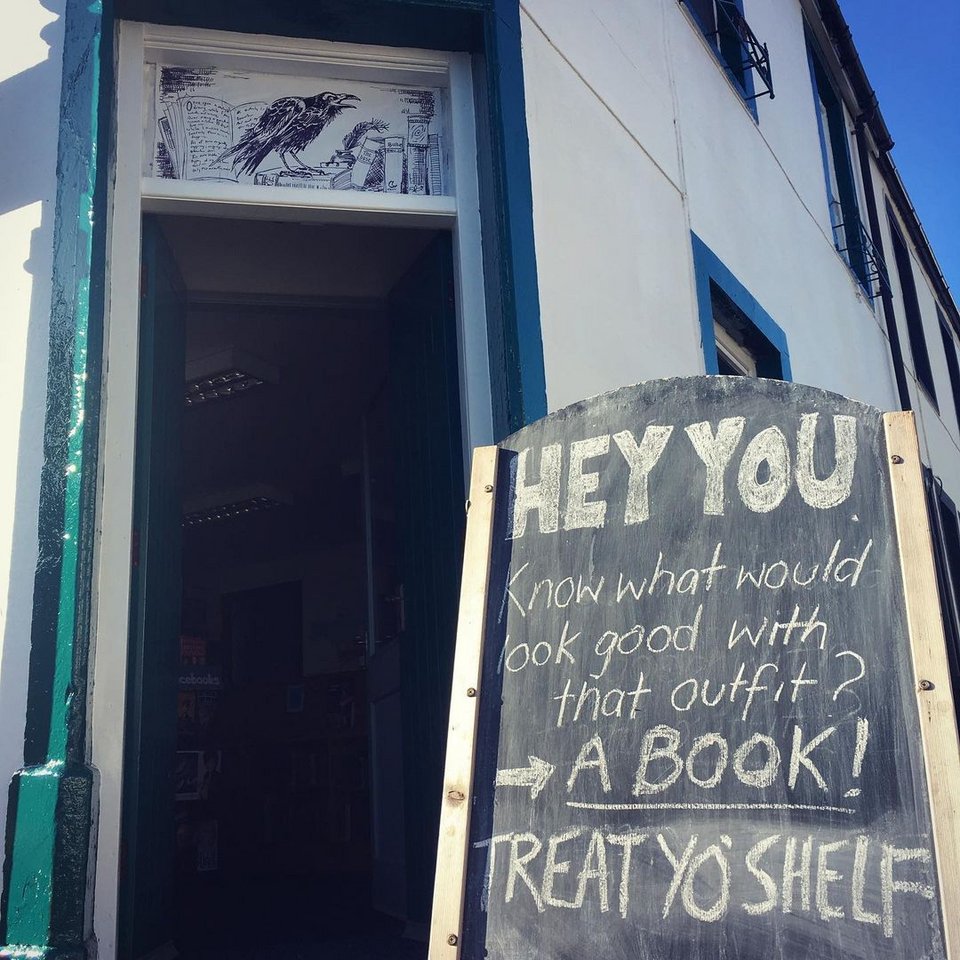 HEY YOU.
Know what would
look good with
that outfit?
→ A BOOK!
TREAT YO' SHELF
cebooks